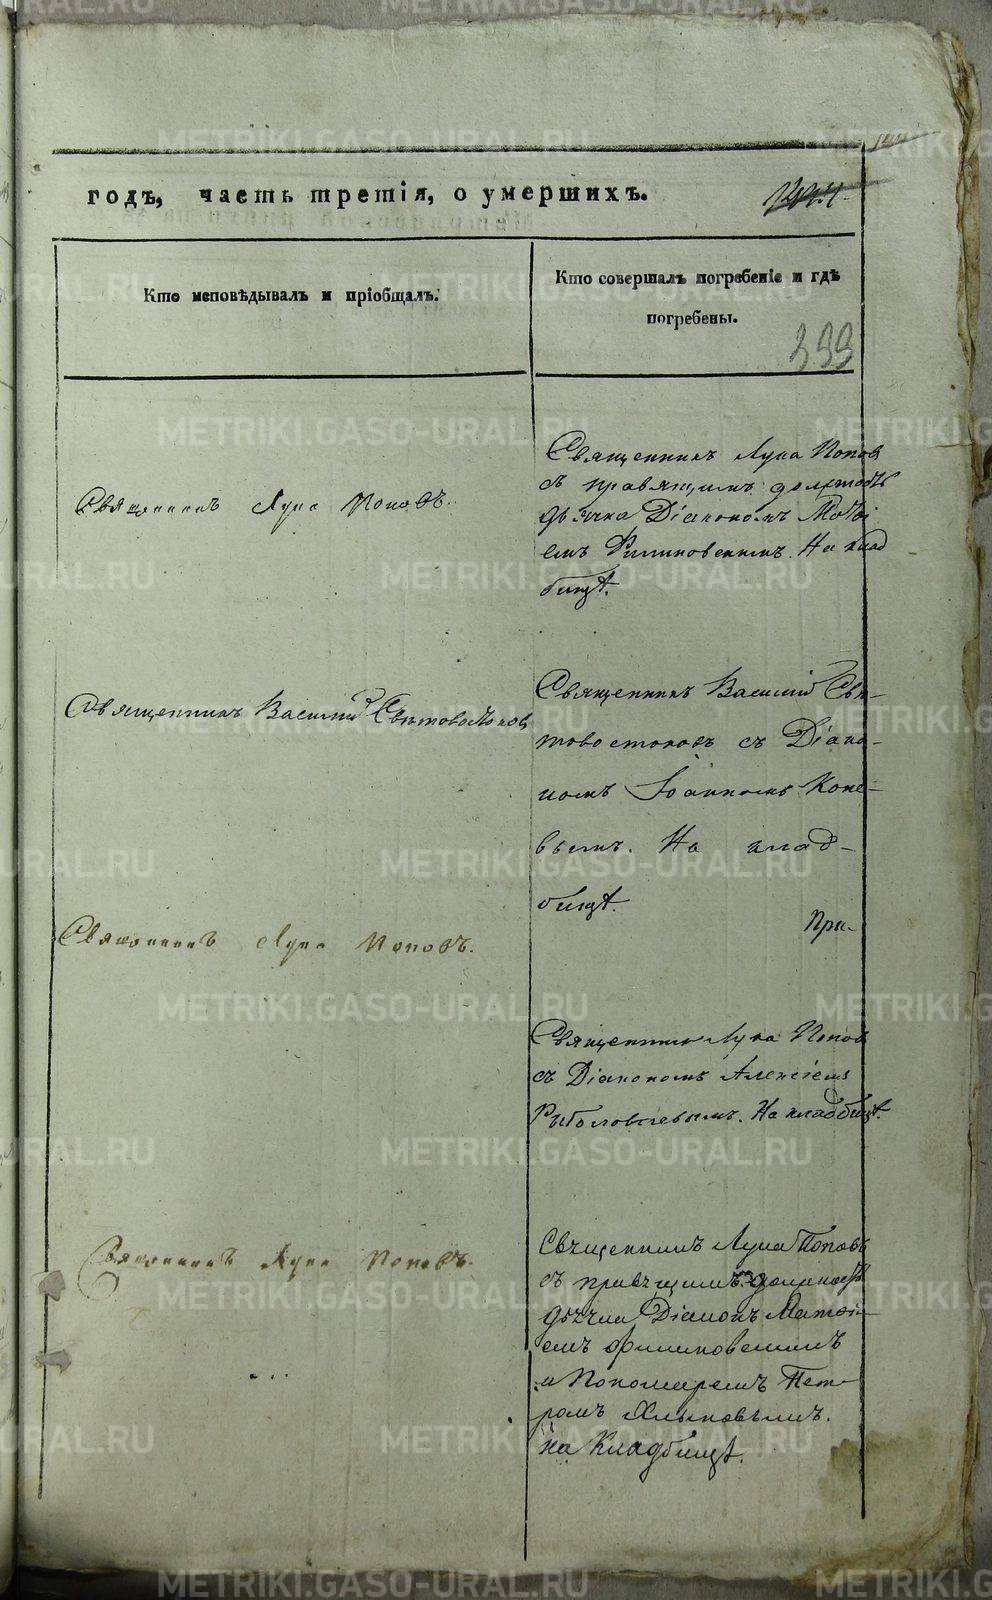 годъ, часть третія, о умершихъ.
Кто исповѣдывалъ и пріобщалъ.
Кто совершалъ погребеніе и гдѣ
погребены.
399
Священникъ Лука Поповъ.
Священникъ Лука Поповъ
съ правящимъ должность
дьячка Діакономъ Матѳі
емъ Филиповскимъ. На клад
бищѣ.
Священникъ Василій Свѣтовостоковъ
Священникъ Василій Свѣ-
товостоковъ съ Діако-
номъ Іоанномъ Коне-
вымъ. На клад-
бищѣ.
При-
Священникъ Лука Поповъ.
Священникъ Лука Поповъ
съ Діакономъ Алексіемъ
Рыболовлевымъ. На кладбищѣ.
Священникъ Лука Поповъ.
Священникъ Лука Поповъ
съ правящимъ должность
дьячка Діаконъ Матѳі-
емъ Филиповскимъ
и Пономаремъ Пет-
ромъ Хлыновымъ.
на Кладбищѣ.
METRIKI.GASO-URAL.RU